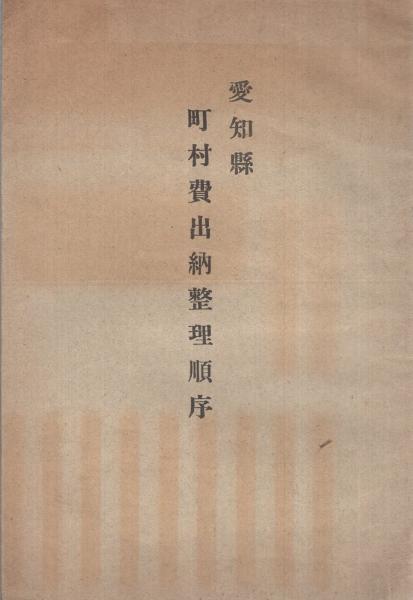 愛知縣
町村費出納整理順序